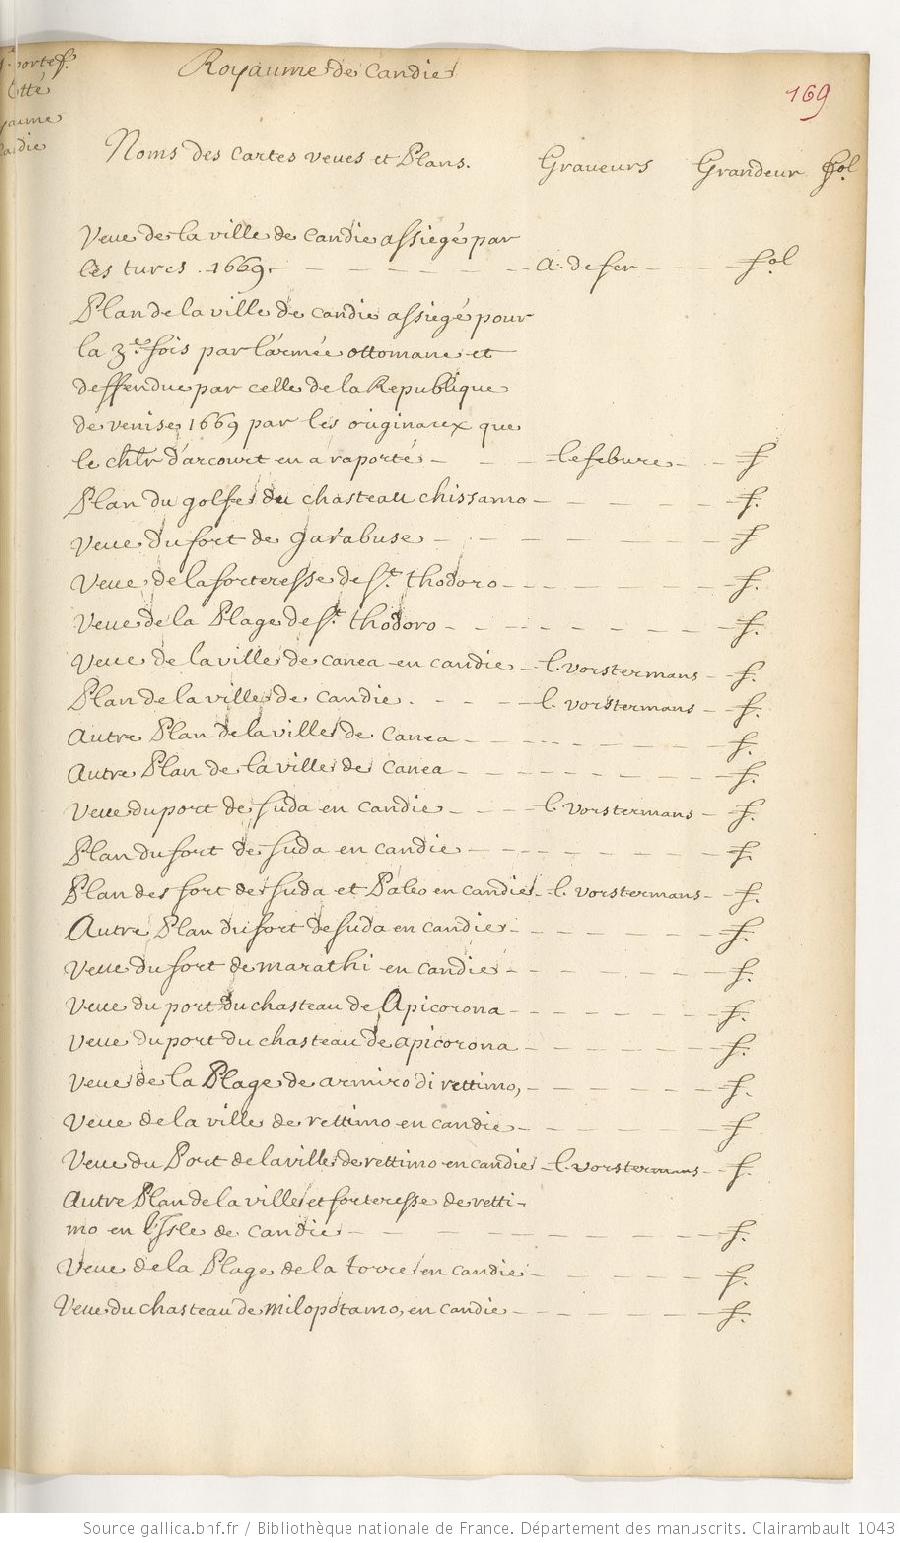 portef.
Cotté
Royaume de Candie
169
Noms des cartes veues et Plans. Graveurs Grandeur fol
Veue de la ville de Candie assiegé par
les turcs . 1669. a. de fer fol
Plan de la ville de Candie assiegé pour
la 3.e fois par l'armée ottomane et
deffendue par celle de la Republique
de venise, 1669 par les originaux que
le chlr d'arcourt en a raporté lefebure f
Plan du golfe du chasteau chissamo f.
Veue du fort de garabuse f
Veue de la forteresse de St. thodoro f.
Veue de la Plage de St. thodoro f.
Veue de la ville de canea en candie l. vorstermans f.
Plan de la ville de Candie l. vorstermans f.
Autre Plan de la ville de Canea f.
Autre Plan de la ville de Canea f.
Veue du port de suda en Candie l. vorstermans f.
Plan du fort de suda en candie f.
Plan des fort de suda et Paleo en candie l. vorstermans f.
Autre Plan du fort de suda en candie f.
Veue du fort de marathi en candie f.
Veue du port du chasteau de Apicorona f.
Veue du port du chasteau de apicorona f.
Veue de la Plage de armiro di rettimo, f.
Veue de la ville de rettimo en candie f
Veue du Port de la ville de rettimo en candie l. vorstermans f.
Autre Plan de la ville et forteresse de retti-
mo en l'Isle de Candie f.
Veue de la Plage de la torre en candie f.
Veue du chasteau de milopotamo, en candie f.
Source gallica.bnf.fr / Bibliothèque nationale de France. Département des manuscrits. Clairambault 1043